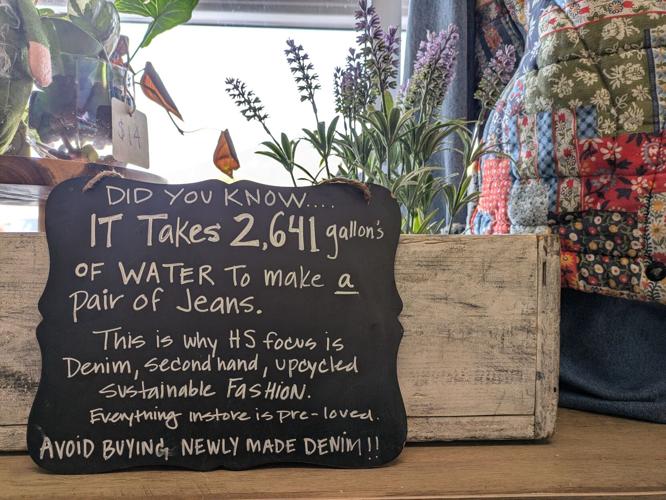 $14
DID YOU KNOW....
IT Takes 2,641 gallon's
OF WATER To make a
pair of Jeans.
This is why HS focus is
Denim, second hand, upcycled
sustainable FASHION.
Everything instore is pre-loved.
AVOID BUYING NEWLY MADE DENIM!!